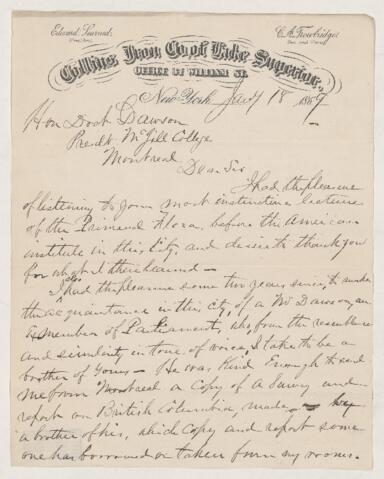 Edward Learned,
President.
C. A. Trowbridge,
Sec. and Treas.
Collins Iron Co. of Lake Superior,
OFFICE 57 WILLIAM ST.
New York Jany 18 1869
Hon Doct Dawson
Presdt McGill College
Montreal
Dear Sir
I had the pleasure
of listening to your most instructive lecture
of the Primaeval Flora, before the American
institute in this City, and desire to thank you
for what I there learned —
I also had the pleasure some two years since, to make
the acquaintance in this city, of a Mr Dawson, an
Ex member of Parliament, who, from the resemblance
and similarity in tone of voice, I take to be a
brother of yours — He was Kind Enough to send
me from Montreal a Copy of a Survey and
report on British Columbia, made by
a brother of his, which Copy and report some
one has borrowed or taken from my rooms.